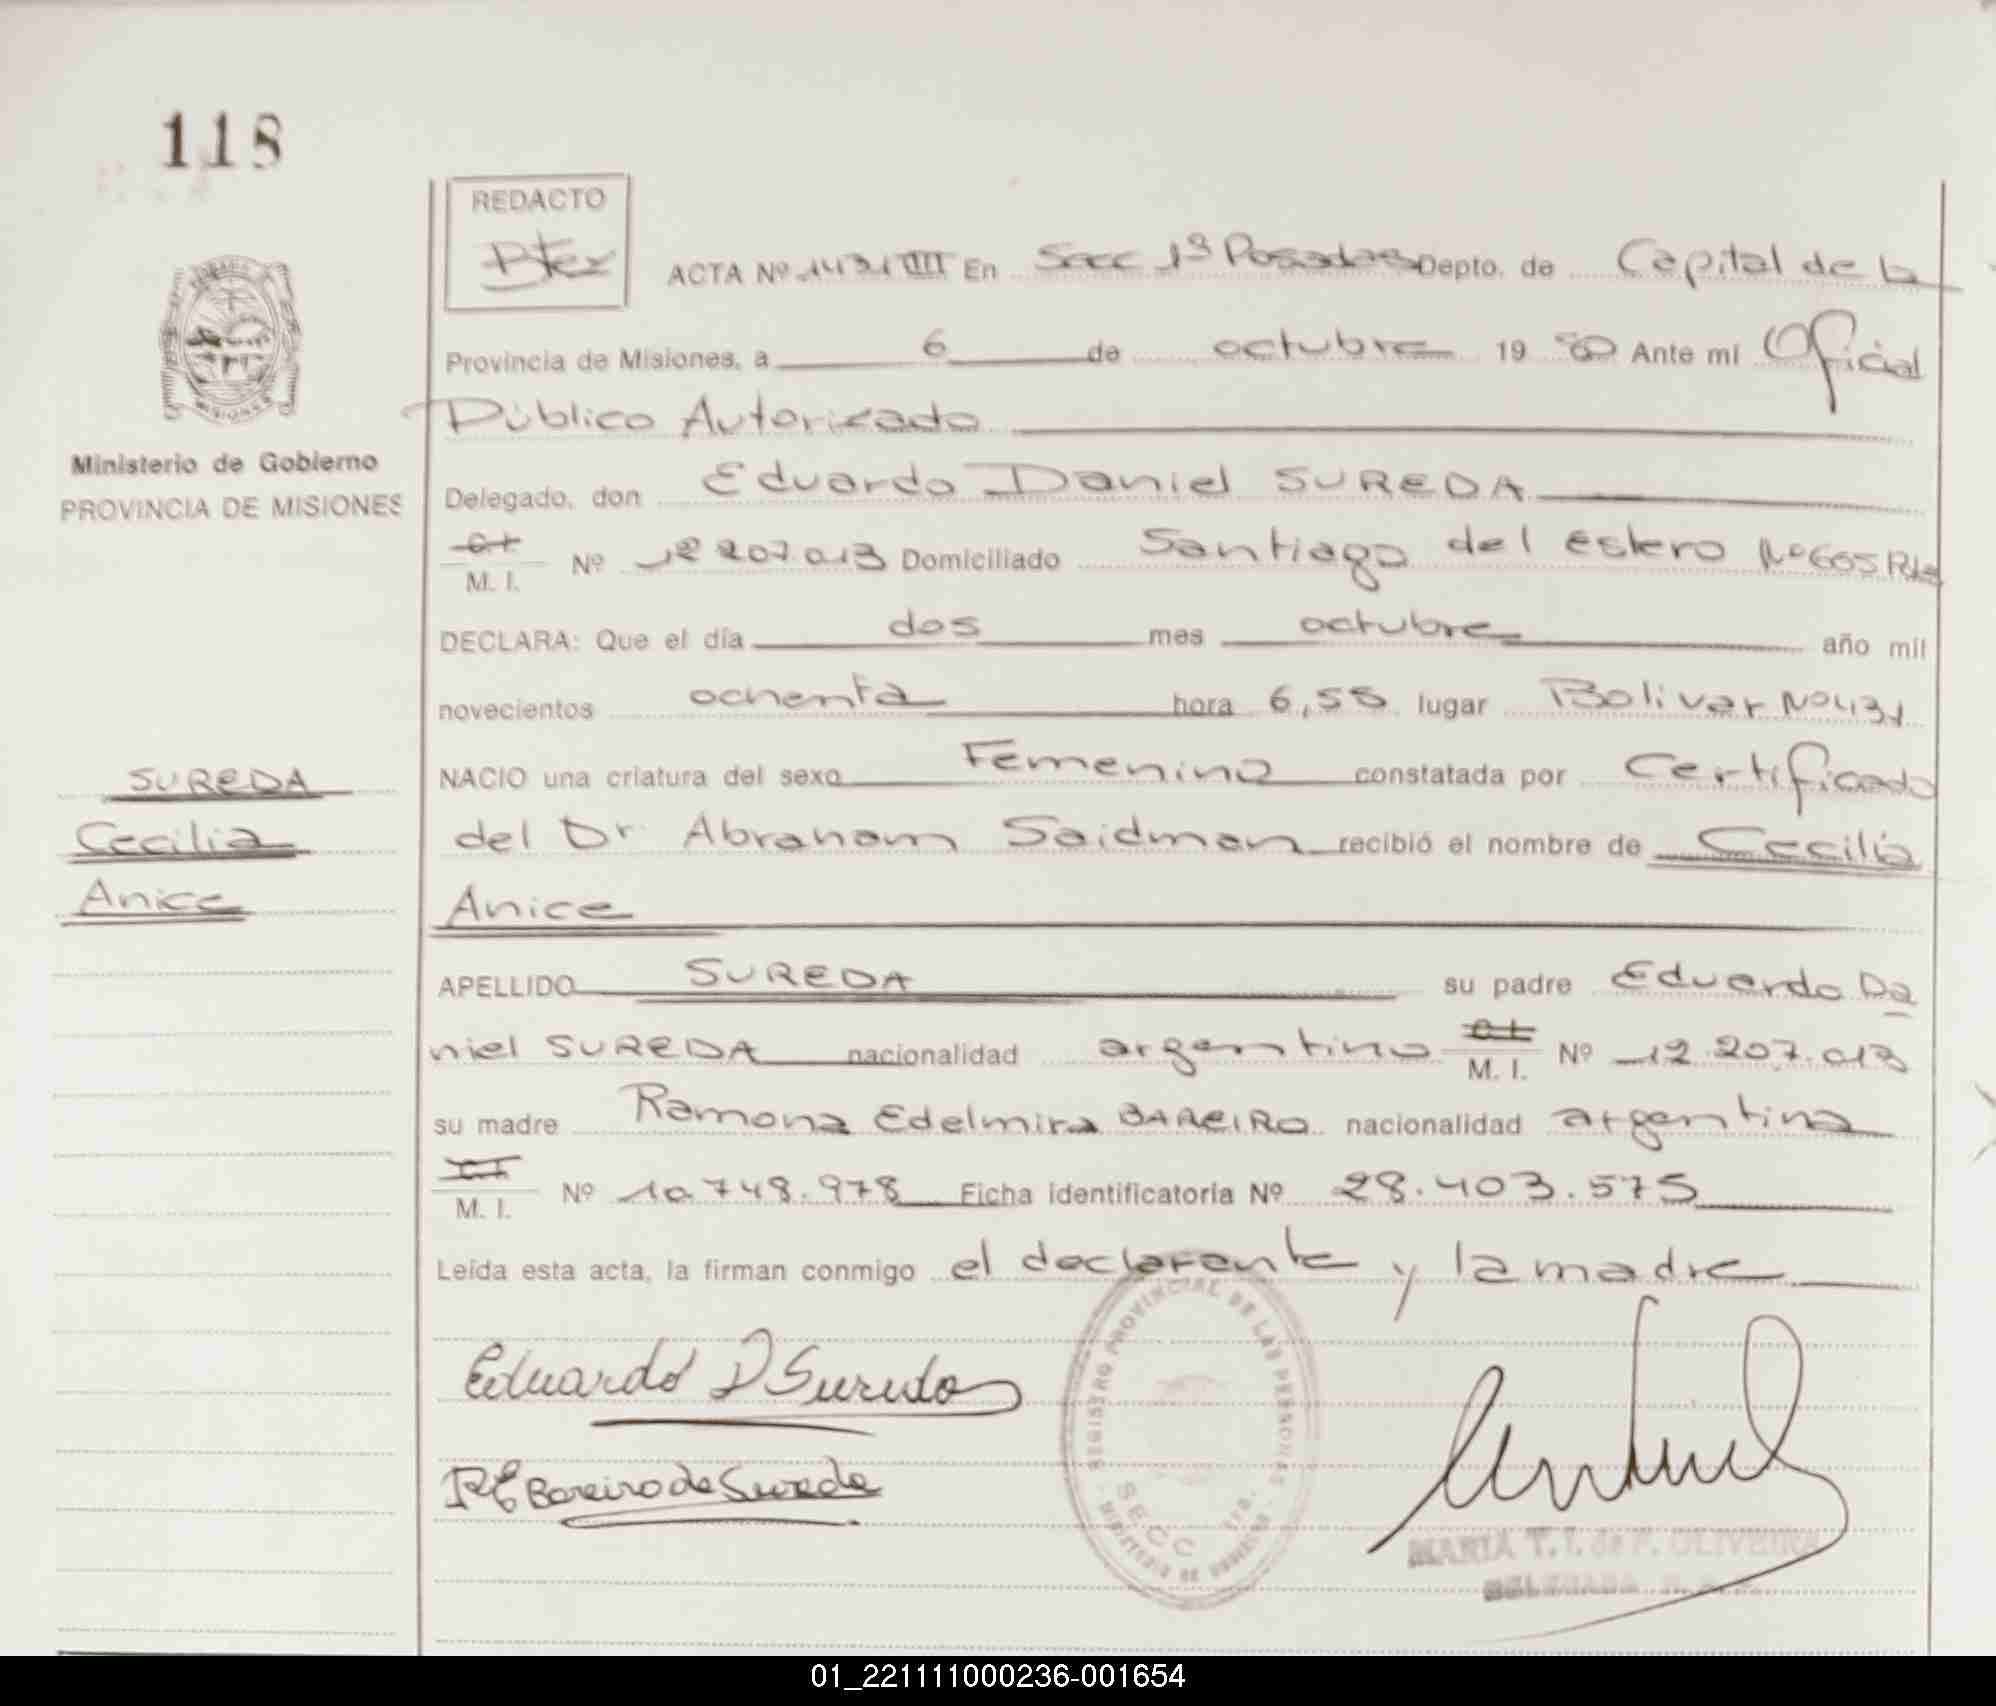 118
REDACTO
ACTA Nº 1431 III En Secc 1ª Posadas Depto. de Capital de la
Provincia de Misiones, a 6 de octubre 19 80 Ante mí Oficial
Público Autorizado
Ministerio de Gobierno
PROVINCIA DE MISIONES
Delegado, don Eduardo Daniel SUREDA
C.I.
M. I. Nº 12 207.013 Domiciliado Santiago del estero Nº 605
DECLARA: Que el día dos mes octubre año mil
novecientos ochenta hora 6,55 lugar Bolivar Nº 431
SUREDA
Cecilia
Anice
NACIO una criatura del sexo Femenino constatada por Certificado
del Dr. Abraham Saidman recibió el nombre de Cecilia
Anice
APELLIDO SUREDA su padre Eduardo Da
niel SUREDA nacionalidad argentino C.I. M. I. Nº 12.207.013
su madre Ramona Edelmira BAREIRO nacionalidad argentina
C.I.
M. I. Nº 10.748.978 Ficha identificatoria Nº 28.403.575
Leída esta acta, la firman conmigo el declarante y la madre
Eduardo D Sureda
RE Bareiro de Sureda
REGISTRO PROVINCIAL DE LAS PERSONAS
SECC 1ra.
MINISTERIO DE GOBIERNO
MARIA T. I. de F. OLIVEIRA
DELEGADA
01_221111000236-001654